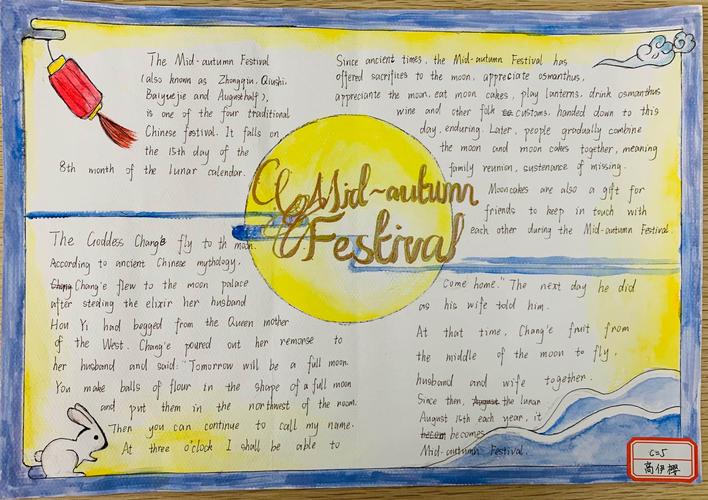 The Mid-autumn Festival
(also known as Zhongqiu, Qiushi,
Baiyuejie and Augusthalf),
is one of the four traditional
Chinese festival. It falls on
the 15th day of the
8th month of the lunar calendar.
Since ancient times, the Mid-autumn Festival has
offered sacrifices to the moon, appreciate osmanthus,
appreciante the moon, eat moon cakes, play lanterns, drink osmanthus
wine and other folk customs, handed down to this
day, enduring. Later, people gradually combine
the moon and moon cakes together, meaning
family reunion, sustenance of missing.
Mooncakes are also a gift for
friends to keep in touch with
each other during the Mid-autumn Festival.
Mid-autumn
Festival
The Goddess Chang'e fly to th moon.
According to ancient Chinese mythology,
Chang'e flew to the moon palace
after stealing the elixir her husband
Hou Yi had begged from the Queen mother
of the West. Chang'e poured out her remorse to
her husband and said: "Tomorrow will be a full moon.
You make balls of flour in the shape of a full moon
and put them in the northwest of the room.
Then you can continue to call my name.
At three o'clock I shall be able to
come home." The next day he did
as his wife told him.
At that time, Chang'e fruit from
the middle of the moon to fly,
husband and wife together.
Since then, August the lunar
August 15th each year, it
becom becomes
Mid-autumn Festival.
高伊樱